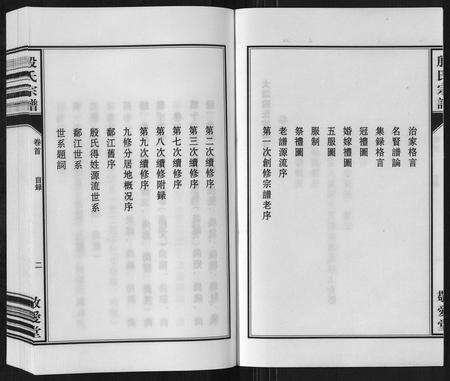 殷氏宗譜
治家格言
名賢譜論
集錄格言
冠禮圖
婚嫁禮圖
五服圖
服制
祭禮圖
老譜源流序
第一次創修宗譜老序
敬愛堂
第二次續修序
第三次續修序
第七次續修序
第八次續修附錄
第九次續修序
九修分居地概况序
鄱江舊序
殷氏得姓源流世系
鄱江世系
世系題詞
殷氏宗譜
卷首
目録
二
敬愛堂